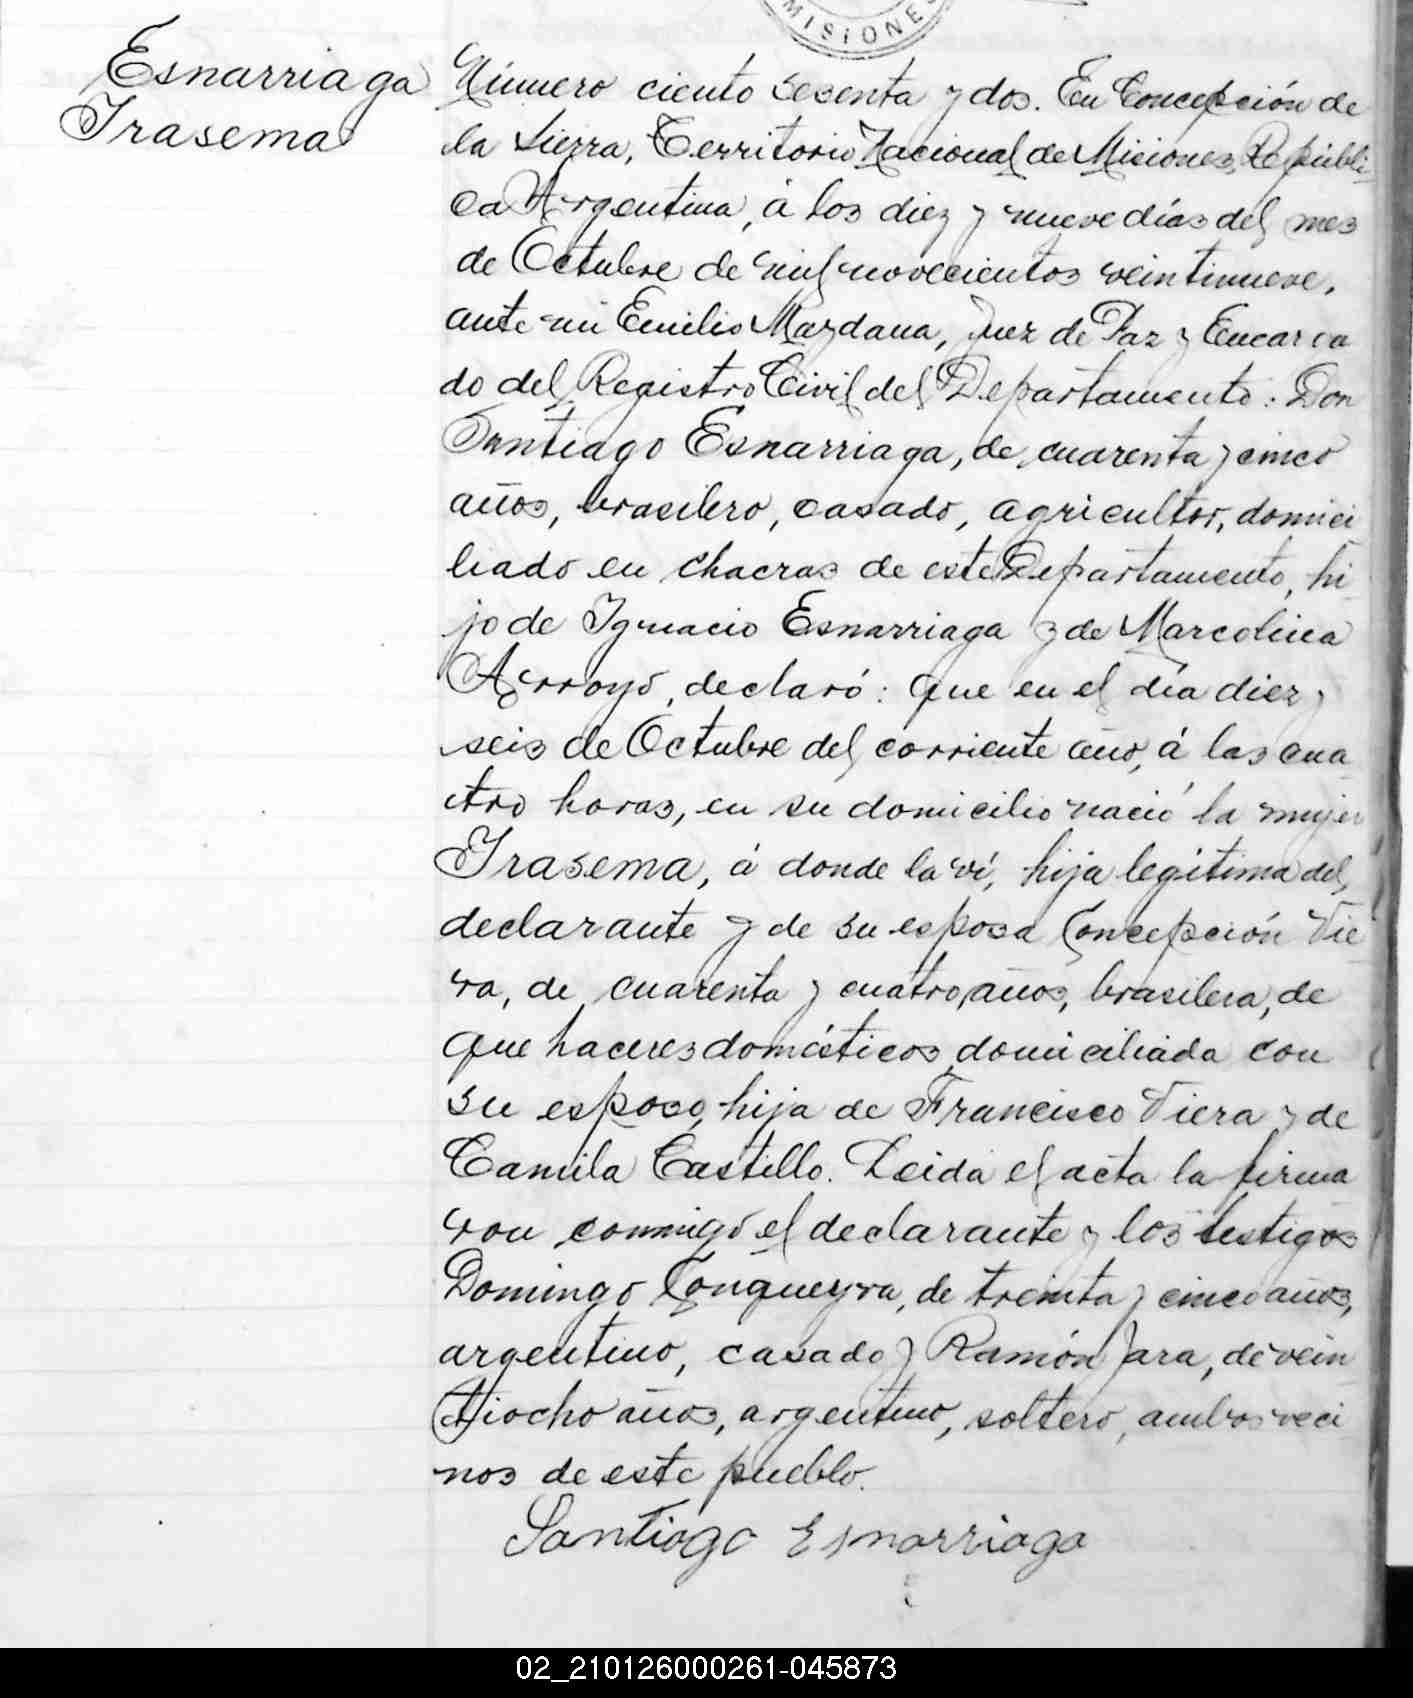 MISIONES
Esnarriaga
Irasema
Número ciento sesenta y dos. En Concepción de
la Sierra, Territorio Nacional de Misiones, Repúbli-
ca Argentina, á los diez y nueve días del mes
de Octubre de mil novecientos veintinueve,
ante mi Emilio Maydana, Juez de Paz y Encarga
do del Registro Civil del Departamento: Don
Santiago Esnarriaga, de cuarenta y cinco
años, brasilero, casado, agricultor, domici
liado en chacras de este Departamento, hi-
jo de Ignacio Esnarriaga y de Marcolina
Arroyo, declaró: que en el día diez y
seis de Octubre del corriente año, á las cua
tro horas, en su domicilio nació la mujer
Irasema, á donde la ví, hija legítima del
declarante y de su esposa Concepción Vie-
ra, de cuarenta y cuatro años, brasilera, de
que haceres domésticos, domiciliada con
su esposo, hija de Francisco Viera y de
Camila Castillo. Leida el acta la firma
ron conmigo el declarante y los testigos
Domingo Conqueyra, de treinta y cinco años,
argentino, casado y Ramón Jara, de vein
tiocho años, argentino, soltero, ambos veci
nos de este pueblo.
Santiago Esnarriaga
02_210126000261-045873